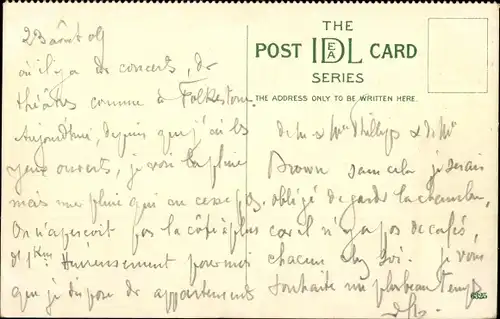 23 août 09
THE
POST IDEAL CARD
SERIES
THE ADDRESS ONLY TO BE WRITTEN HERE.
où il y a des concerts, des
théâtres comme à Folkestone.
Aujourd'hui, depuis que j'ai les
yeux ouverts, je vois la pluie
mais une pluie qui ne cesse pas.
On n'aperçoit pas la côte à plus
d'1 Km. Heureusement pour moi
que je dispose de appartements
de M. & Mme Phillips & de Mr
Brown sans cela je serais
obligé de garder la chambre,
car il n'y a pas de cafés,
chacun chez soi. Je vous
souhaite un plus beau temps